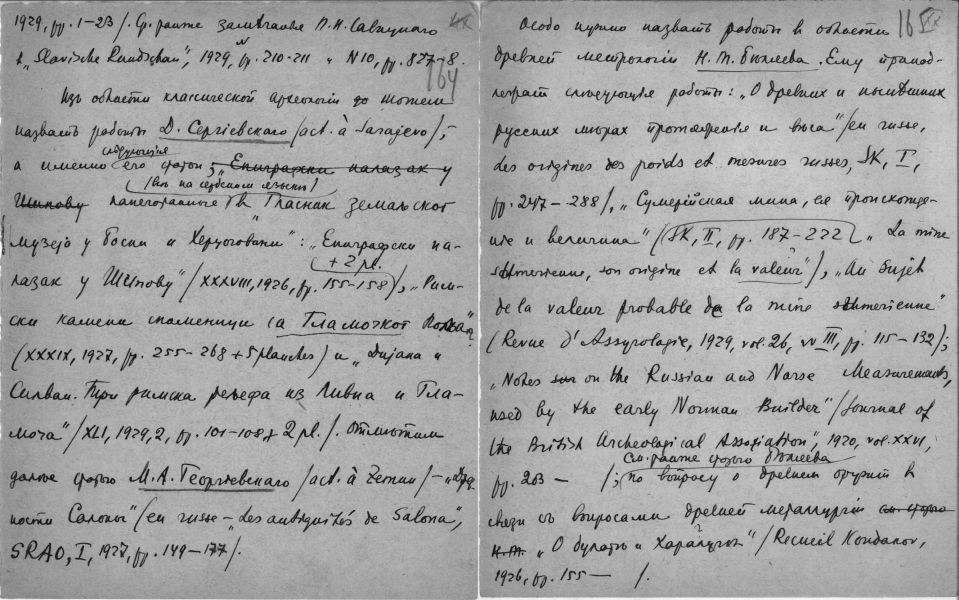 1929, pp. 1-23/. Ср. ранее замечанье П. Н. Савицкаго
в „Slavische Rundschau", 1929, pp. 210-211 и N 10, pp. 827-8.
164
Изъ области классической археологіи можем
назвать работы Д. Сергіевскаго /act. à Sarajevo/;
а именно его следующія статьи; „Епиграфски налазак у
/всѣ на сербском языкѣ/
Шипову напечатанные въ „Гласник земальског
музеја у Босни и Херцеговини": „Епиграфски на-
+ 2 pl.
лазак у Шипову" /XXXVIII, 1926, pp. 155-158/, „Рим-
ски камени споменици са Гламочког Поља"
(XXXIX, 1927, pp. 255-268 + 5 planches) и „Дијана и
Силван. Три римска рељефа из Ливна и Гла-
моча" /XLI, 1929, 2, pp. 101-108, + 2 pl./. Отмѣтим
далѣе статью М. А. Георгіевскаго /act. à Zemun/ - „Древ
ности Салоны" /en russe - „Les antiquités de Salona",
SRAO, I, 1927, pp. 149-177/.
165
Особо нужно назвать работы в области
древней метрологіи Н. Т. Бѣляева. Ему принад-
лежат слѣдующія работы: „О древних и нынѣшних
русских мѣрах протяженія и вѣса" /en russe,
Les origines des poids et mesures russes, SK, I,
pp. 247-288/, „Сумерійская мина, ея происхожде-
ніе и величина" (SK, II, pp. 187-222 „La mine
sumerienne, son origine et la valeur"/, „Au sujet
de la valeur probable de la mine sumerienne"
(Revue d'Assyrologie, 1929, vol. 26, III, pp. 115-132);
„Notes on the Russian and Norse Measurements,
used by the early Norman Builder" /Journal of
the British Archeological Association", 1920, vol. XXVI,
См. ранее статью Бѣляева
pp. 203 - /; по вопросу о древнем оружіи в
связи съ вопросами древней металлургіи см. статью
Н. Т. „О булатѣ и Харалугѣ" /Recueil Kondakov,
1926, pp. 155 - /.